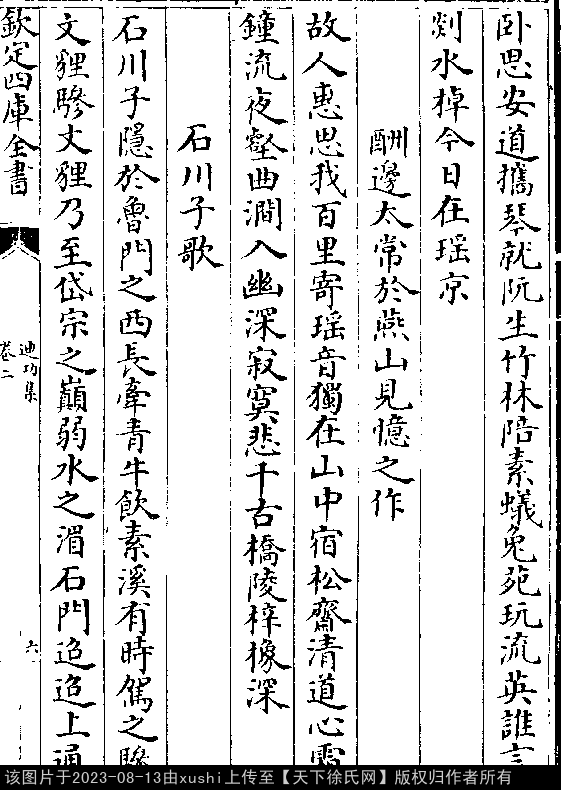 卧思安道攜琴就阮生竹林陪素蟻兔苑玩流英誰言
剡水棹今日在瑶京
酬邊太常於燕山見憶之作
故人惠思我百里寄瑶音獨在山中宿松齋清道心霜
鐘流夜壑曲澗入幽深寂寞悲千古橋陵梓橡深
石川子歌
石川子隱於魯門之西長牽青牛飲素溪有時駕之驂
文貍驂文貍乃至岱宗之巔弱水之湄石門迢迢上通
欽定四庫全書
迪功集
卷二
六
该图片于2023-08-13由xushi上传至【天下徐氏网】版权归作者所有